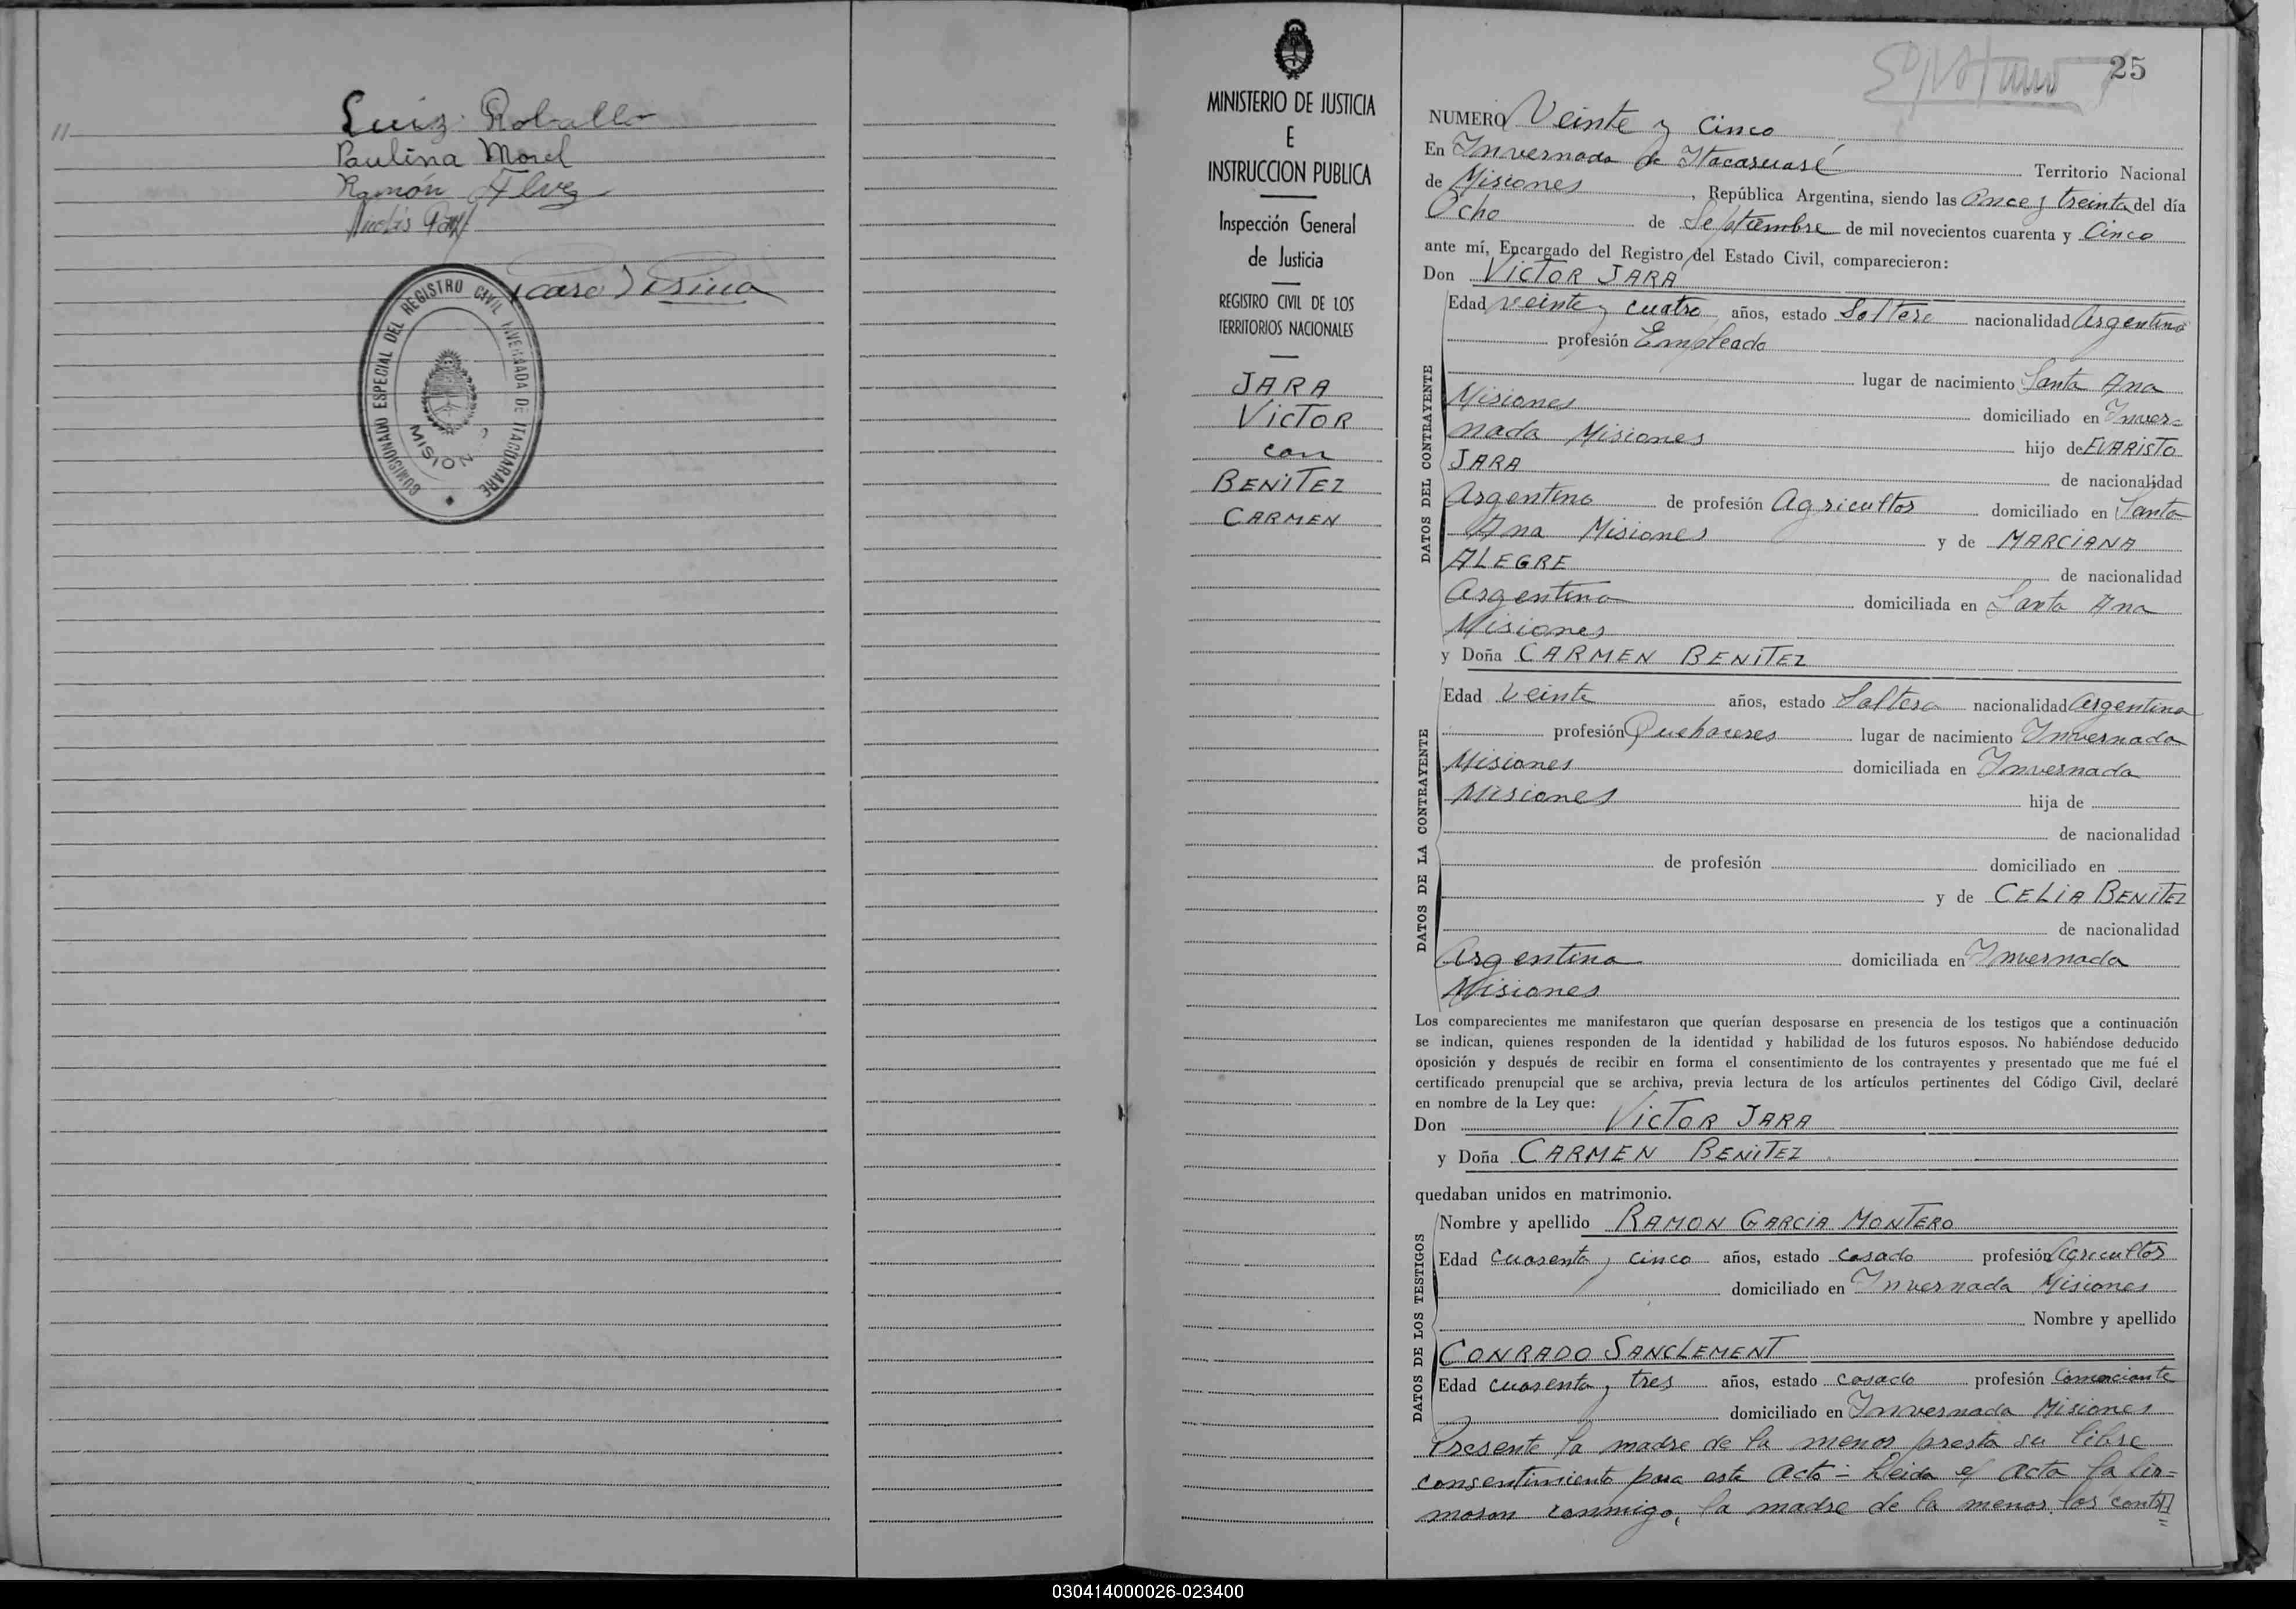 11
Luiz Roballo
Paulina Morel
Ramón Alvez
COMISIONADO ESPECIAL DEL REGISTRO CIVIL INVERNADA DE ITACUARARE
MISIONES
MINISTERIO DE JUSTICIA
E
INSTRUCCION PUBLICA
Inspección General
de Justicia
REGISTRO CIVIL DE LOS
TERRITORIOS NACIONALES
JARA
VICTOR
con
BENITEZ
CARMEN
25
NUMERO Veinte y Cinco
En Invernada de Itacaruaré Territorio Nacional
de Misiones, República Argentina, siendo las Once y treinta del día
Ocho de Septiembre de mil novecientos cuarenta y Cinco
ante mí, Encargado del Registro del Estado Civil, comparecieron:
Don VICTOR JARA
DATOS DEL CONTRAYENTE
Edad veinte y cuatro años, estado Soltero nacionalidad Argentino
profesión Empleado
lugar de nacimiento Santa Ana
Misiones domiciliado en Inver=
nada Misiones hijo de EVARISTO
JARA de nacionalidad
Argentino de profesión Agricultor domiciliado en Santa
Ana Misiones y de MARCIANA
ALEGRE de nacionalidad
Argentina domiciliada en Santa Ana
Misiones
y Doña CARMEN BENITEZ
DATOS DE LA CONTRAYENTE
Edad Veinte años, estado Soltera nacionalidad Argentina
profesión Quehaceres lugar de nacimiento Invernada
Misiones domiciliada en Invernada
Misiones hija de
de nacionalidad
de profesión domiciliado en
y de CELIA BENITEZ
de nacionalidad
Argentina domiciliada en Invernada
Misiones
Los comparecientes me manifestaron que querían desposarse en presencia de los testigos que a continuación
se indican, quienes responden de la identidad y habilidad de los futuros esposos. No habiéndose deducido
oposición y después de recibir en forma el consentimiento de los contrayentes y presentado que me fué el
certificado prenupcial que se archiva, previa lectura de los artículos pertinentes del Código Civil, declaré
en nombre de la Ley que:
Don VICTOR JARA
y Doña CARMEN BENITEZ
quedaban unidos en matrimonio.
DATOS DE LOS TESTIGOS
Nombre y apellido RAMON GARCIA MONTERO
Edad cuarenta y cinco años, estado casado profesión Agricultor
domiciliado en Invernada Misiones
Nombre y apellido
CONRADO SANCLEMENT
Edad cuarenta y tres años, estado casado profesión Comerciante
domiciliado en Invernada Misiones
Presente la madre de la menor presta su libre
consentimiento para este acto - Leida el acta la fir=
maron conmigo, la madre de la menor, los contra
030414000026-023400